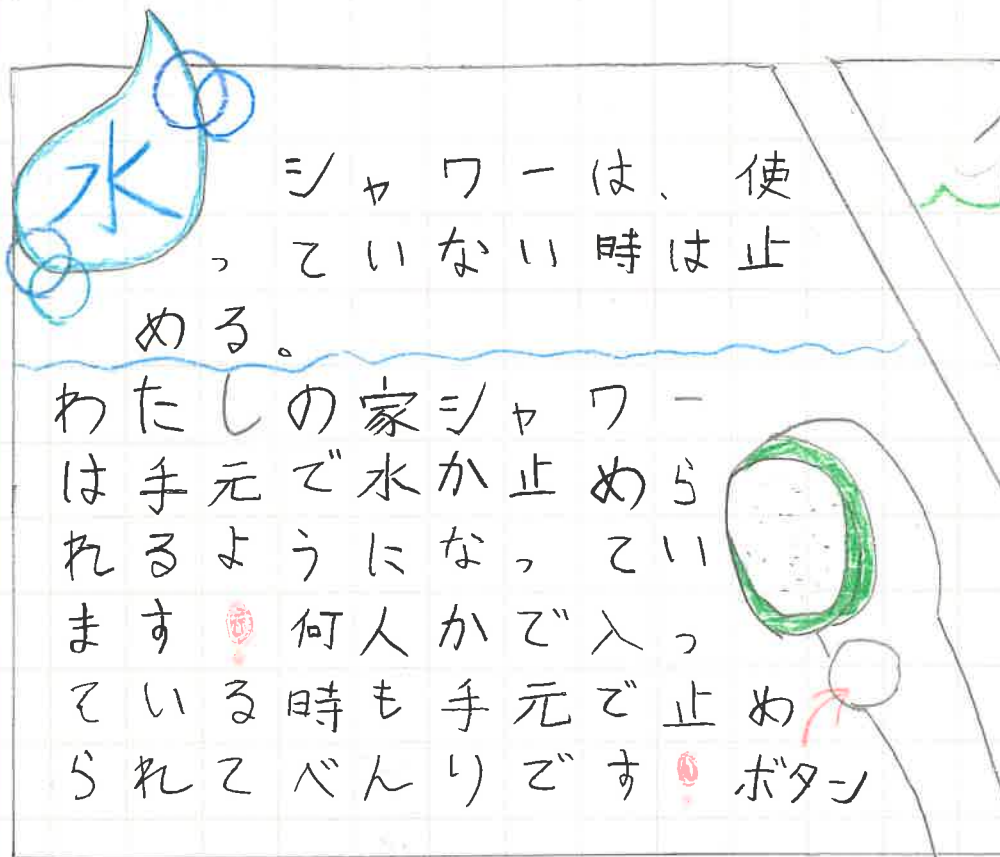 水
シャワーは、使
っていない時は止
める。
わたしの家シャワー
は手元で水か止めら
れるようになってい
ます!何人かで入っ
ている時も手元で止め
られてべんりです!
ボタン